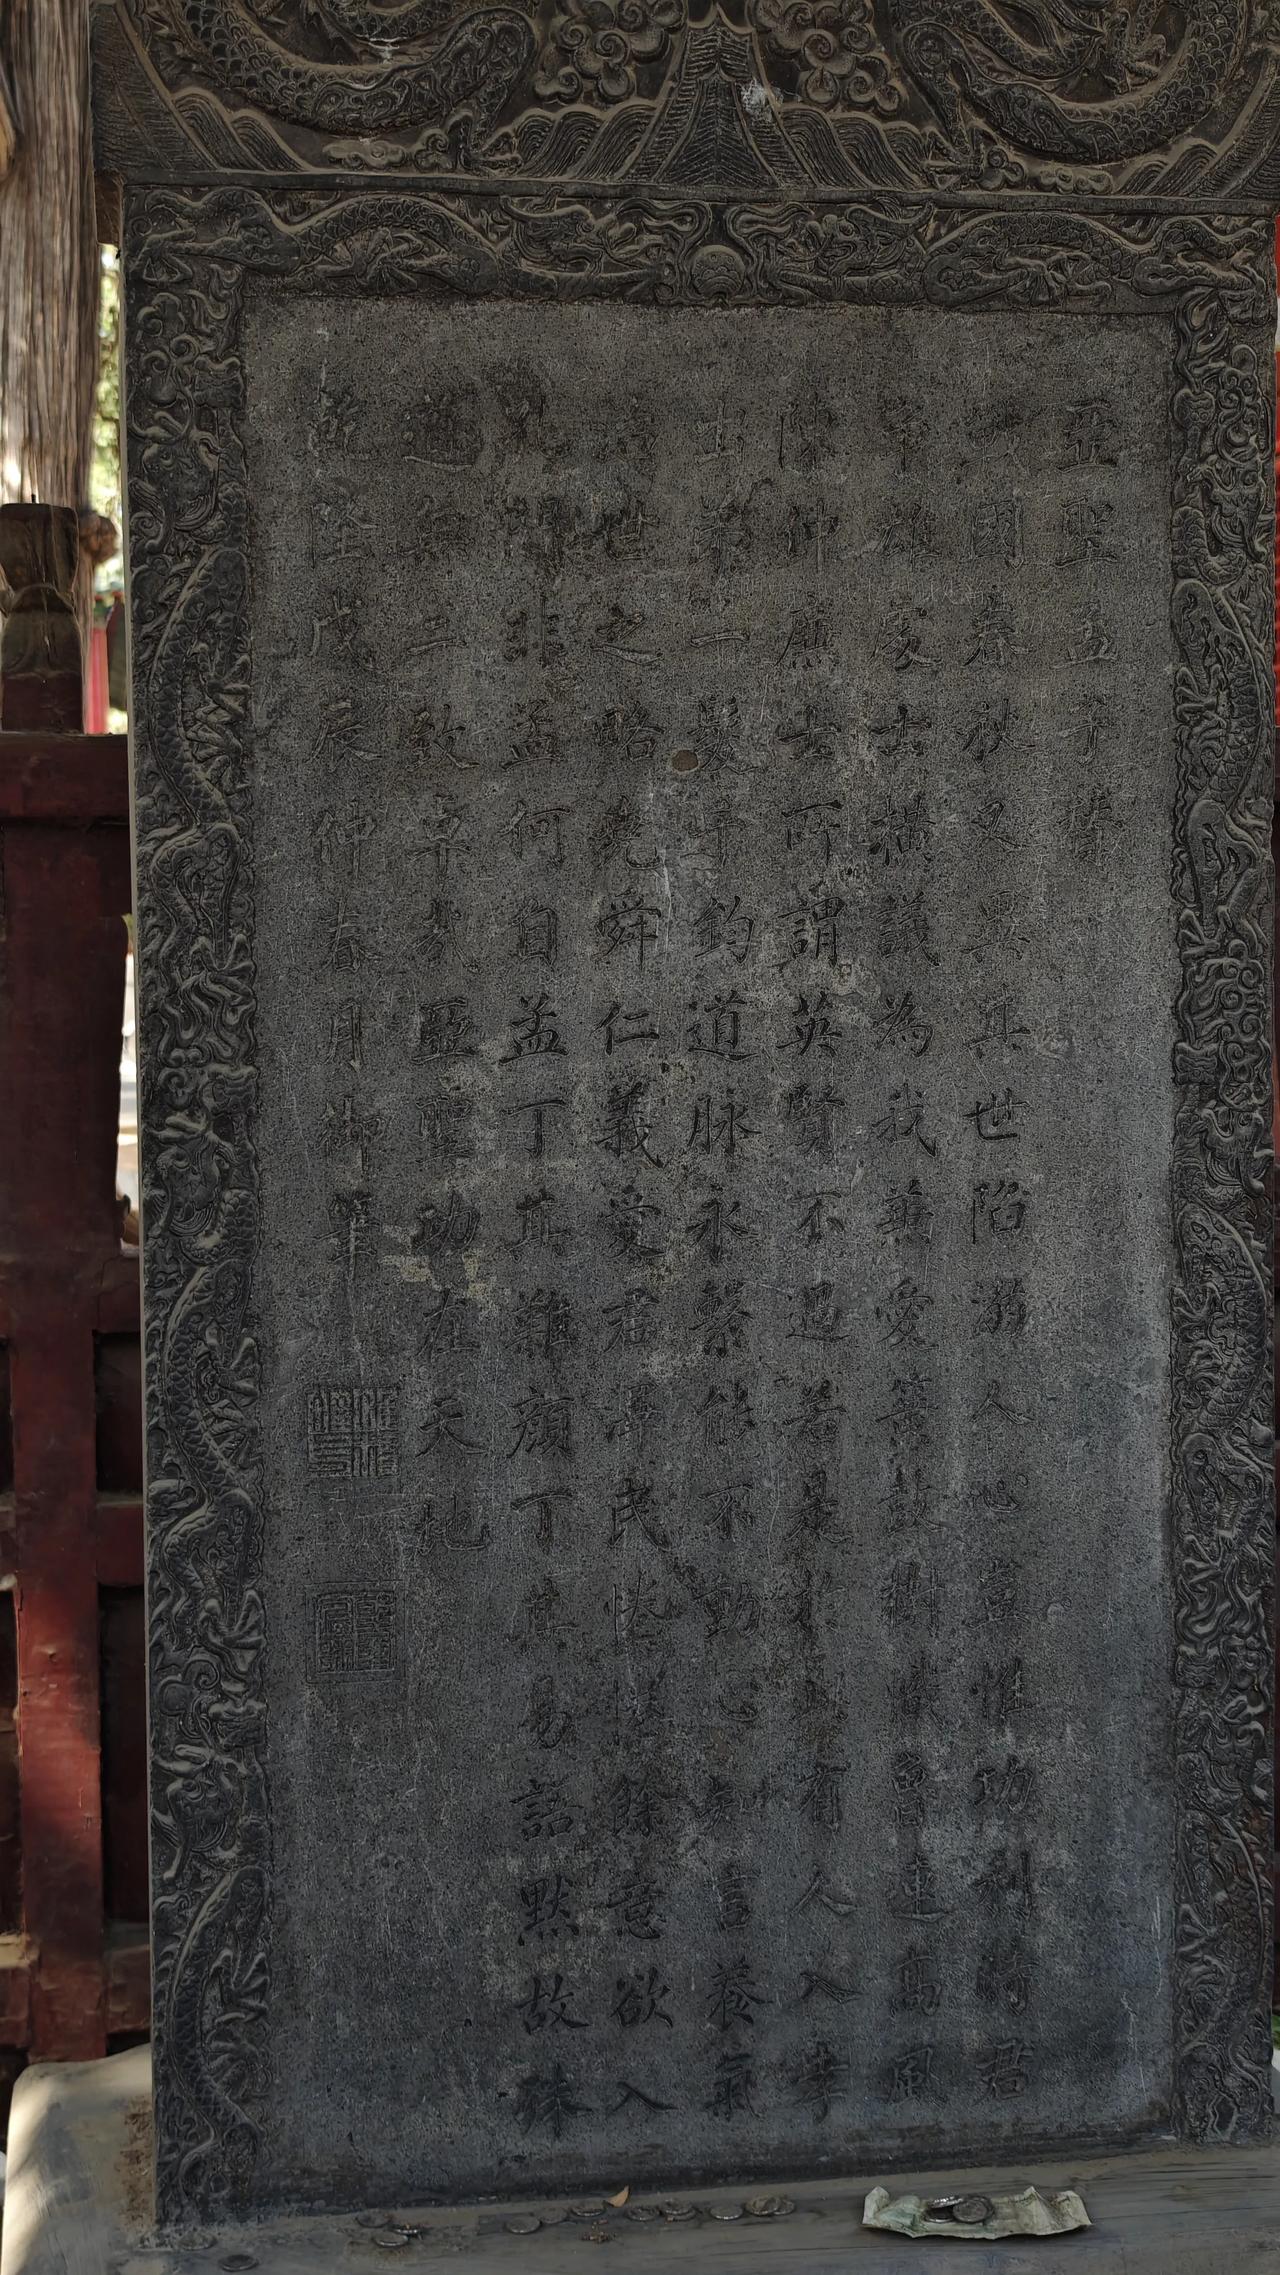 亞聖孟子贊
戰國春秋又異其世陷溺人心豈惟功利時君
爭雄處士橫議為我兼愛簧鼓樹幟魯連高風
陳仲廉士所謂英賢不過若是於此有人入孝
出弟一髮千鈞道脉永繫能不動心知言養氣
治世之略堯舜仁義愛君澤民惓惓餘意欲入
孔門非孟何自孟丁其難顔丁其易語默故殊
道無二致卓哉亞聖功在天地
乾隆戊辰仲春月御筆